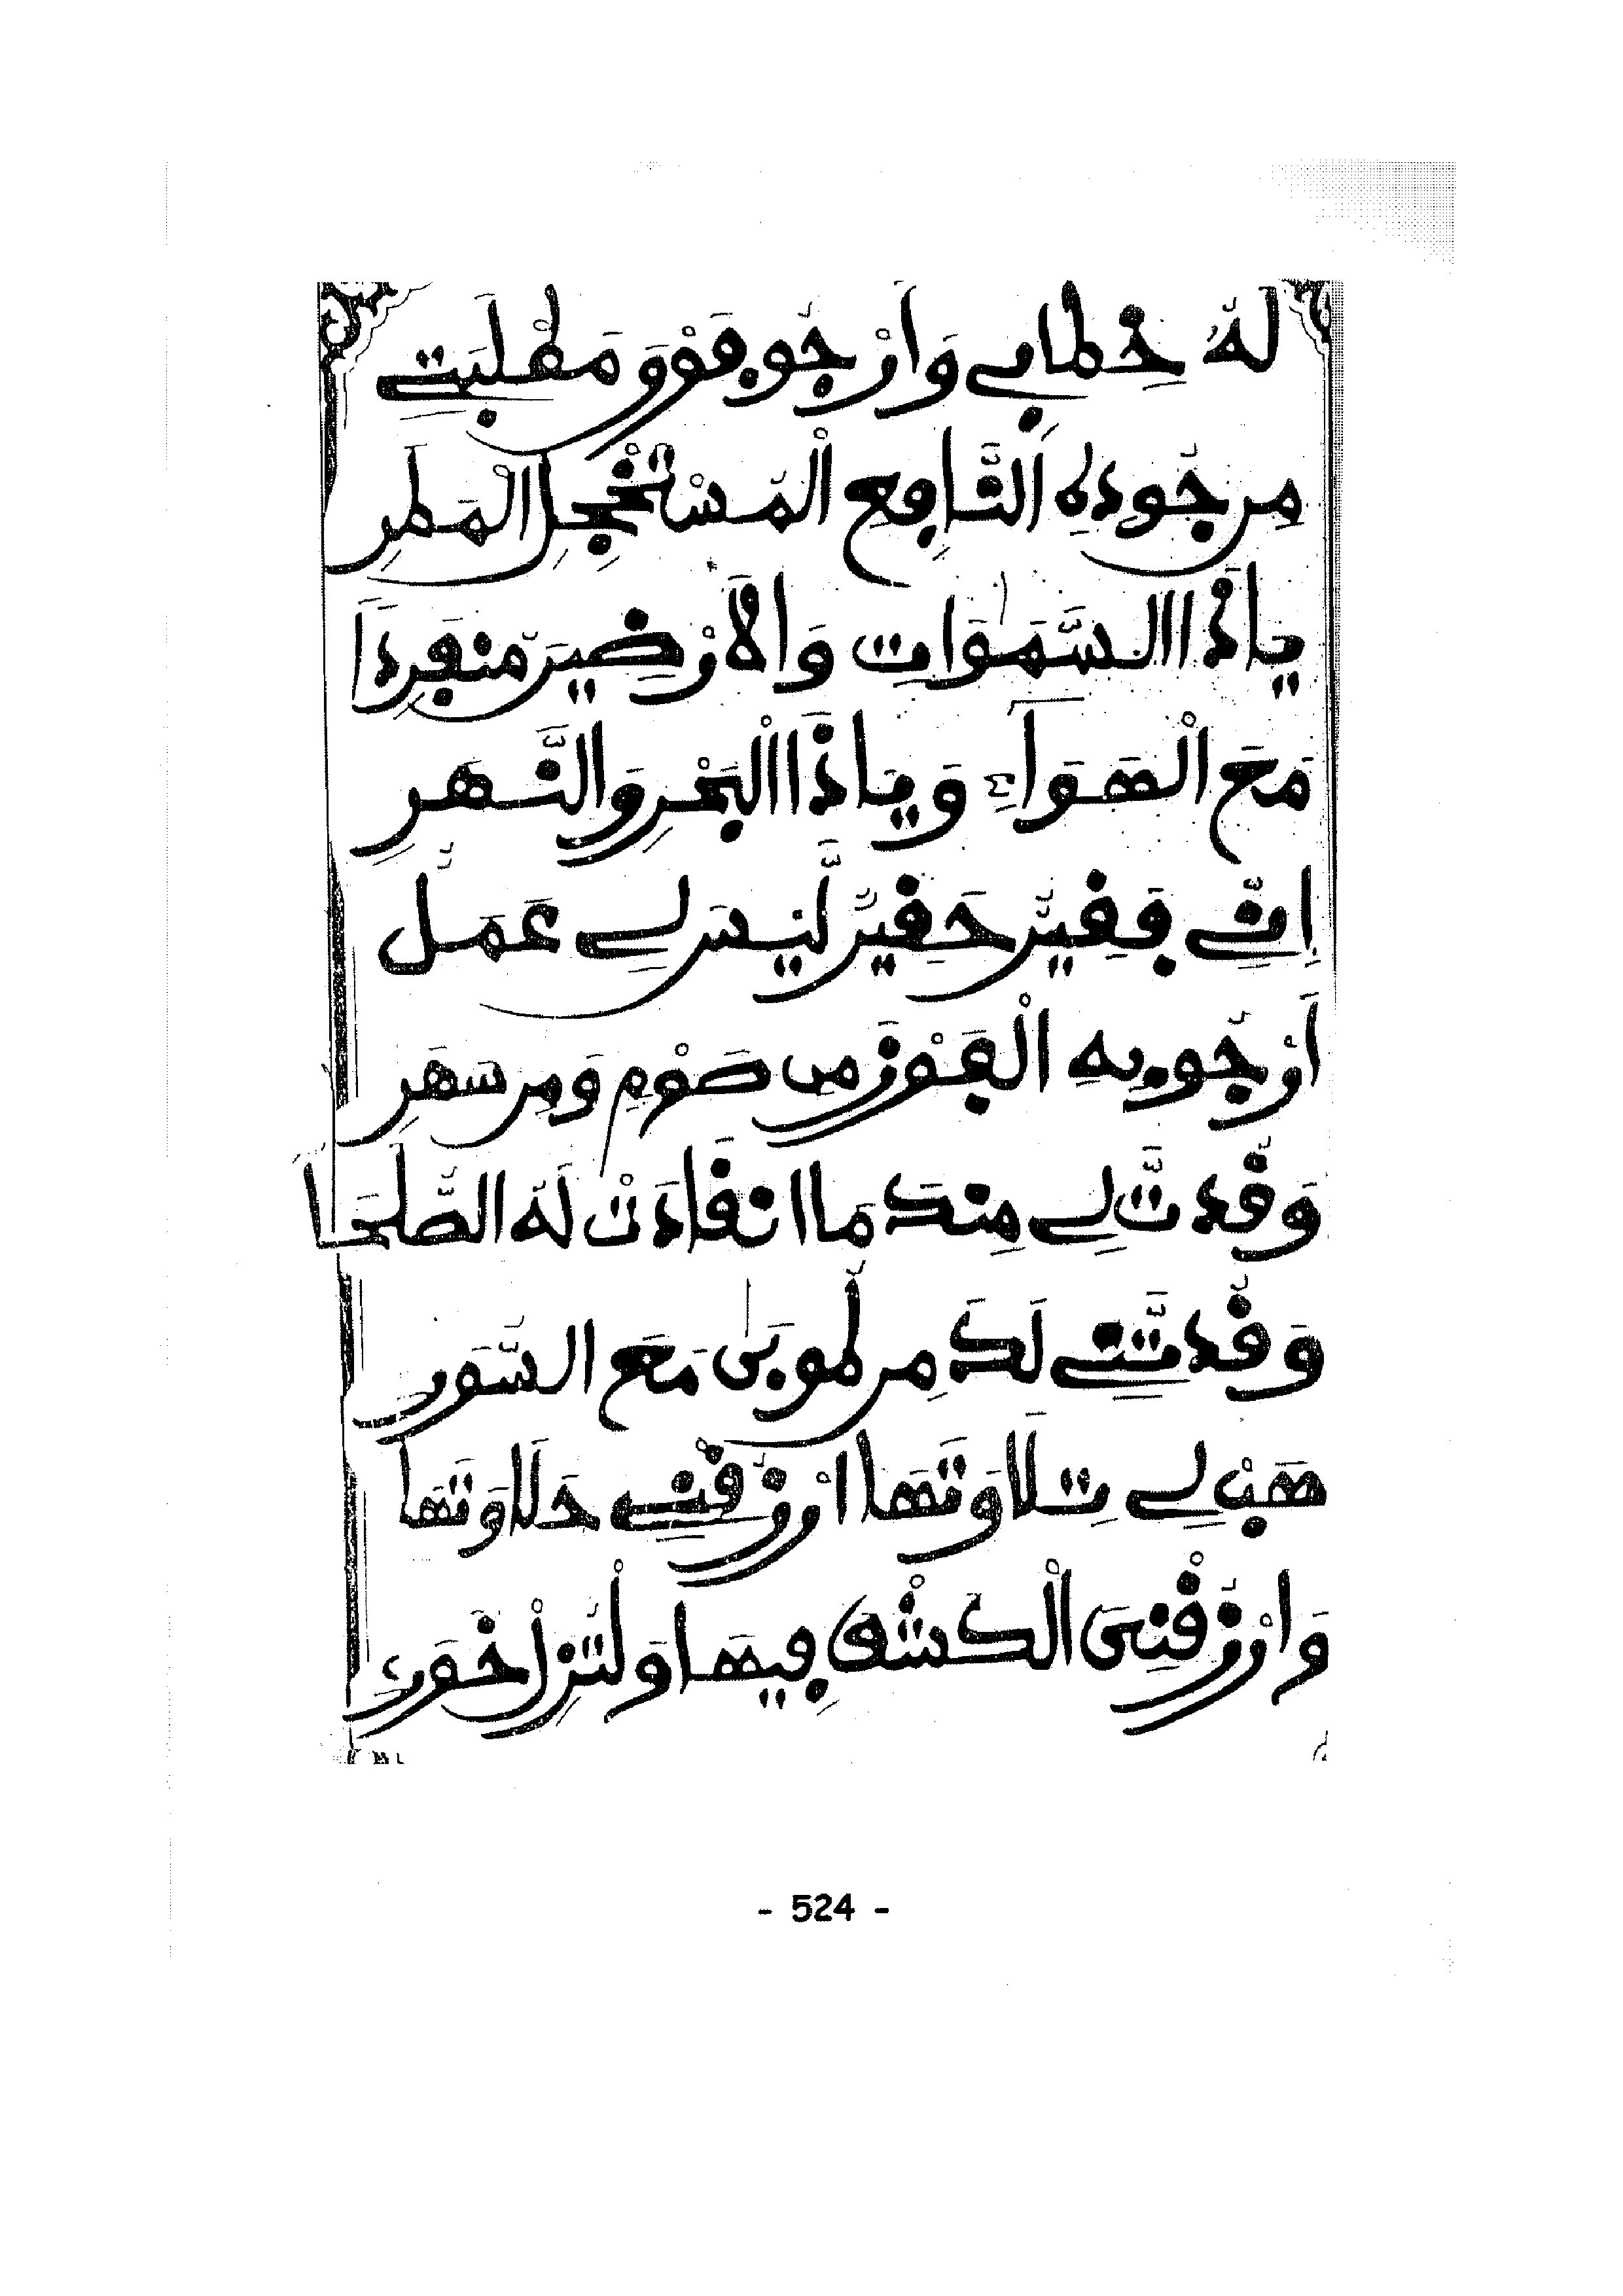 لَهُ خِطَابِي وَأَرْجُو فَوْقَ مَطْلَبَتِي
مِن جُودِهِ النَّافِعِ الْمُسْتَخْجِلِ الْمَطَر
يَا ذَا السَّمَوَاتِ وَالْأَرْضِينَ مُنْفَرِدًا
مَعَ الْهَوَاءِ وَيَا ذَا الْبَحْرِ وَالنَّهَرِ
إِنِّي فَقِيرٌ حَقِيرٌ لَيْسَ لِي عَمَلٌ
أَرْجُو بِهِ الْفَوْزَ مِن صَوْمٍ وَمِن سَهَرِ
وَقُدتَّ لِي مِنكَ مَا انقَادَتْ لَهُ الصُّلَحَا
وَقُدتَّنِي لَكَ مَعَ السُّوَرِ
هَبْ لِي تِلَاوَتَهَا ارْزُقْنِي حَلَاوَتَهَا
وَارْزُقْنِيَ الْكَشْفَ فِيهَا وَلْتُزِلْ خَوَرِ
- 524 -